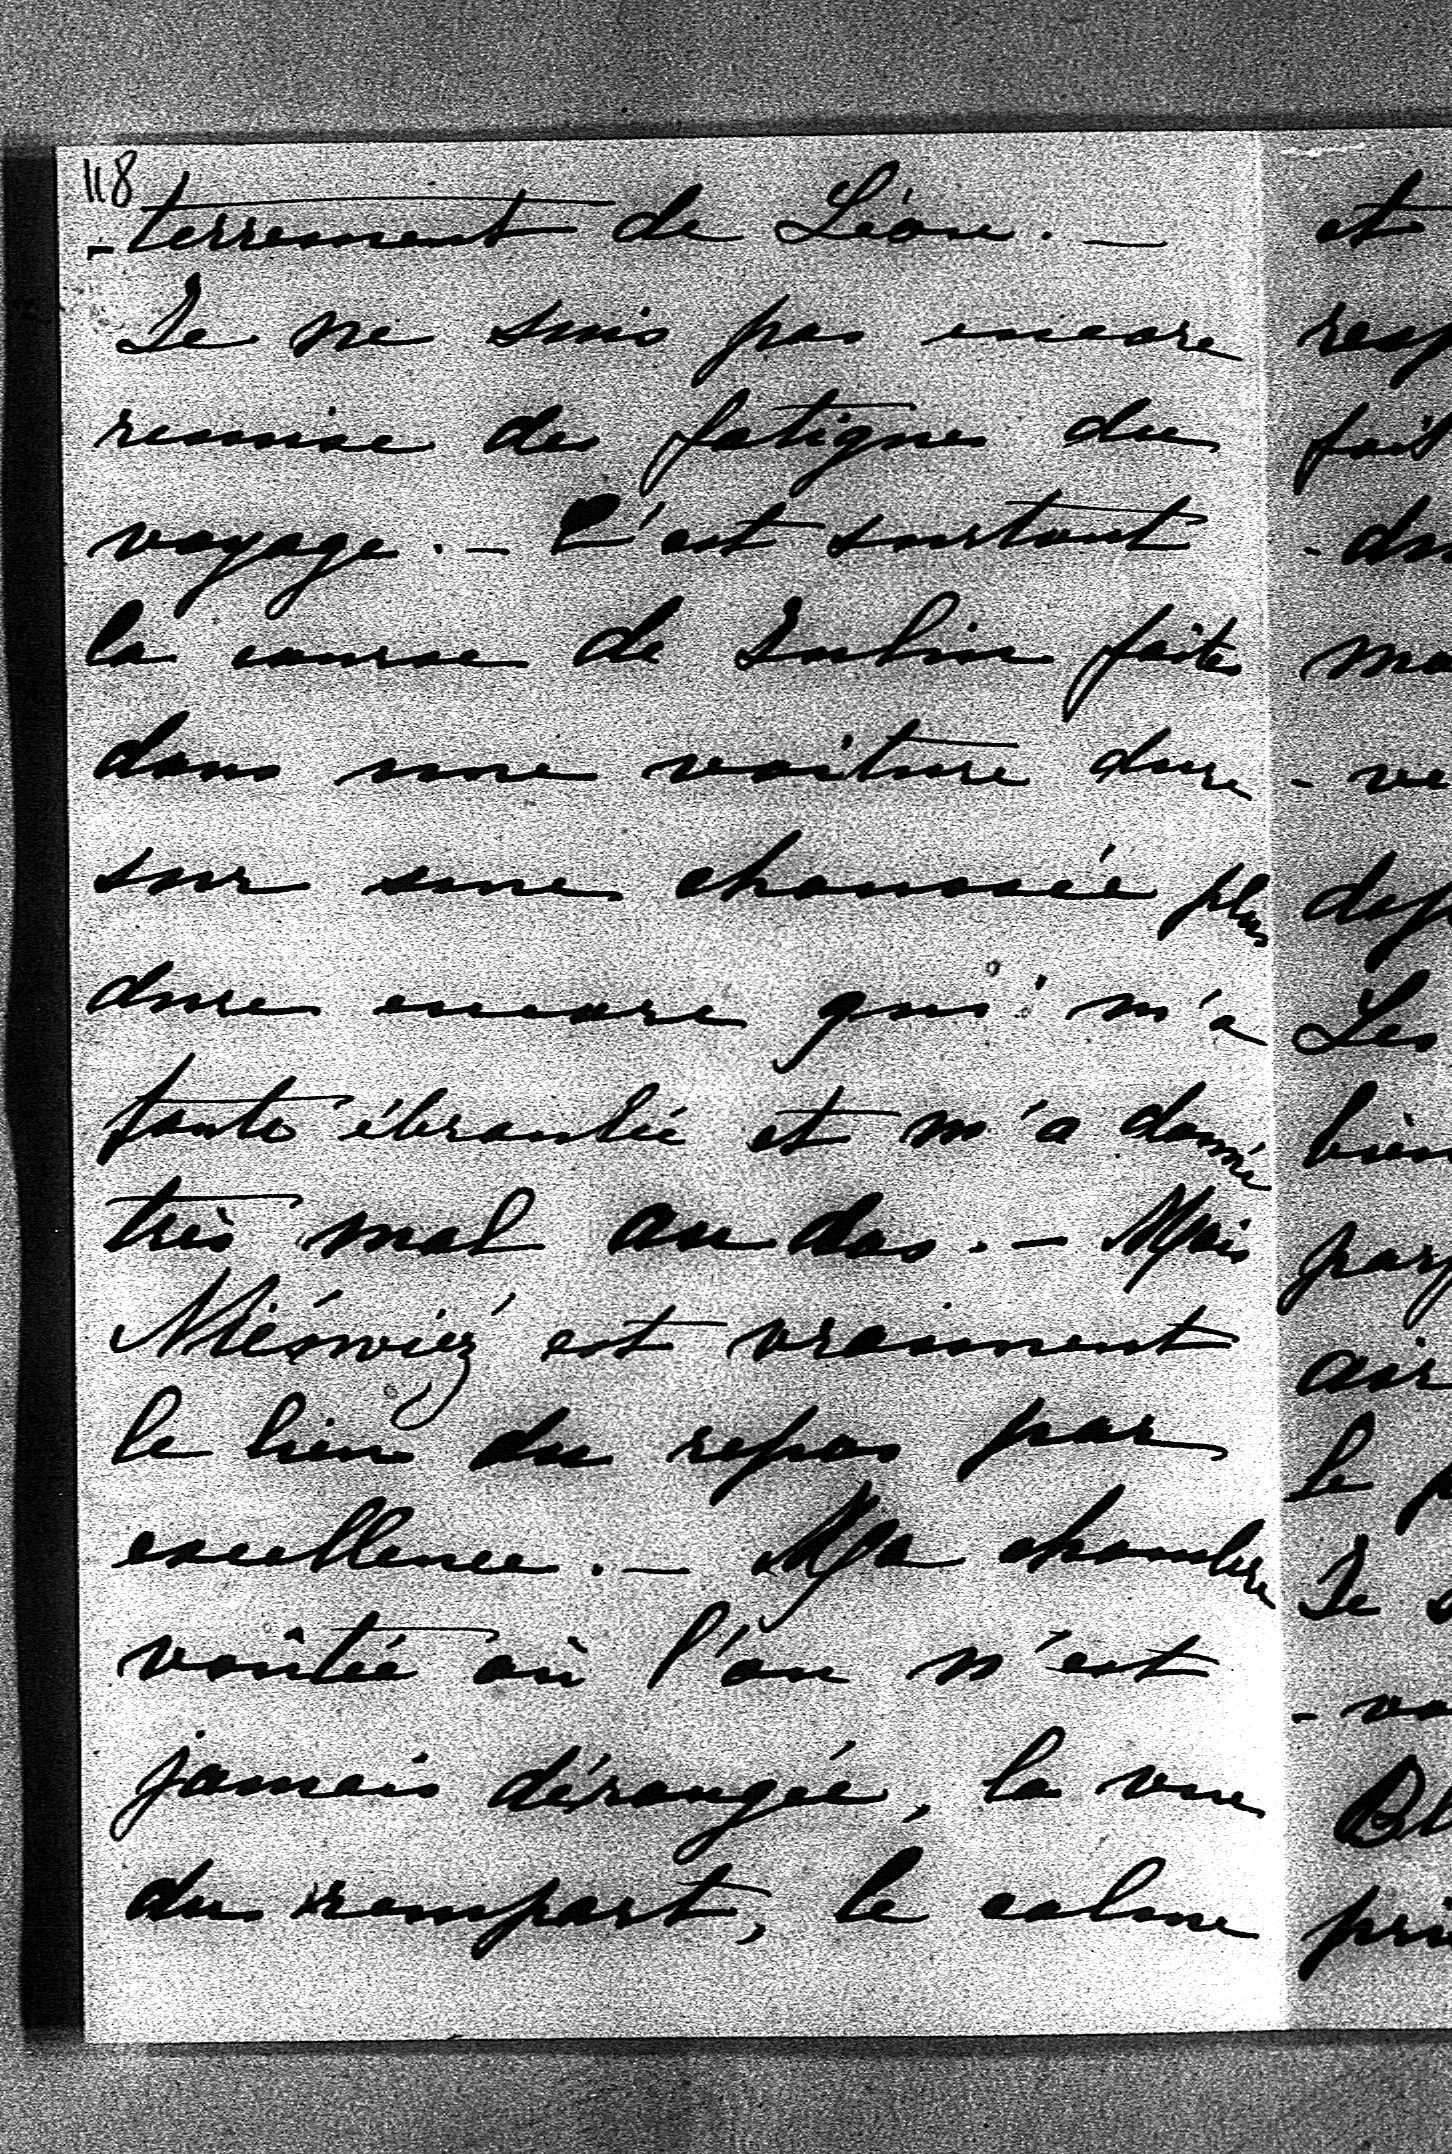 118
-terrement de Léon. —
Je ne suis pas encore
remise des fatigues du
voyage. — C'est surtout
la course de faite
dans une voiture dure
sur une chaussée plus
dure encore qui m'a
toute ébranlée et m'a donné
très mal au dos. — Mais
Nieświeź est vraiment
le lieu du repos par
excellence. — Ma chambre
voûtée où l'on n'est
jamais dérangée, la vue
du rempart, le calme
et
resp
fait
-du
ma
- ve
dep
Les
bien
parf
air
le p
Je s
- vo
Bl
pri